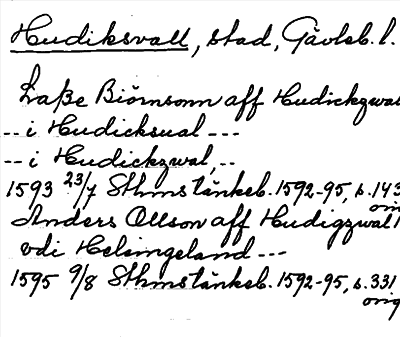 Hudiksvall, stad, Gävleb. l.
Laße Biörnsonn aff Hudickzwal
-- i Hudicksual ---
-- i Hudickzwal, --
1593 23/7 Sthms tänkeb. 1592-95, s. 143
orig
Anders Ollson aff Hudigzwall
vdi Helsingeland ---
1595 9/8 Sthms tänkeb. 1592-95, s. 331
orig